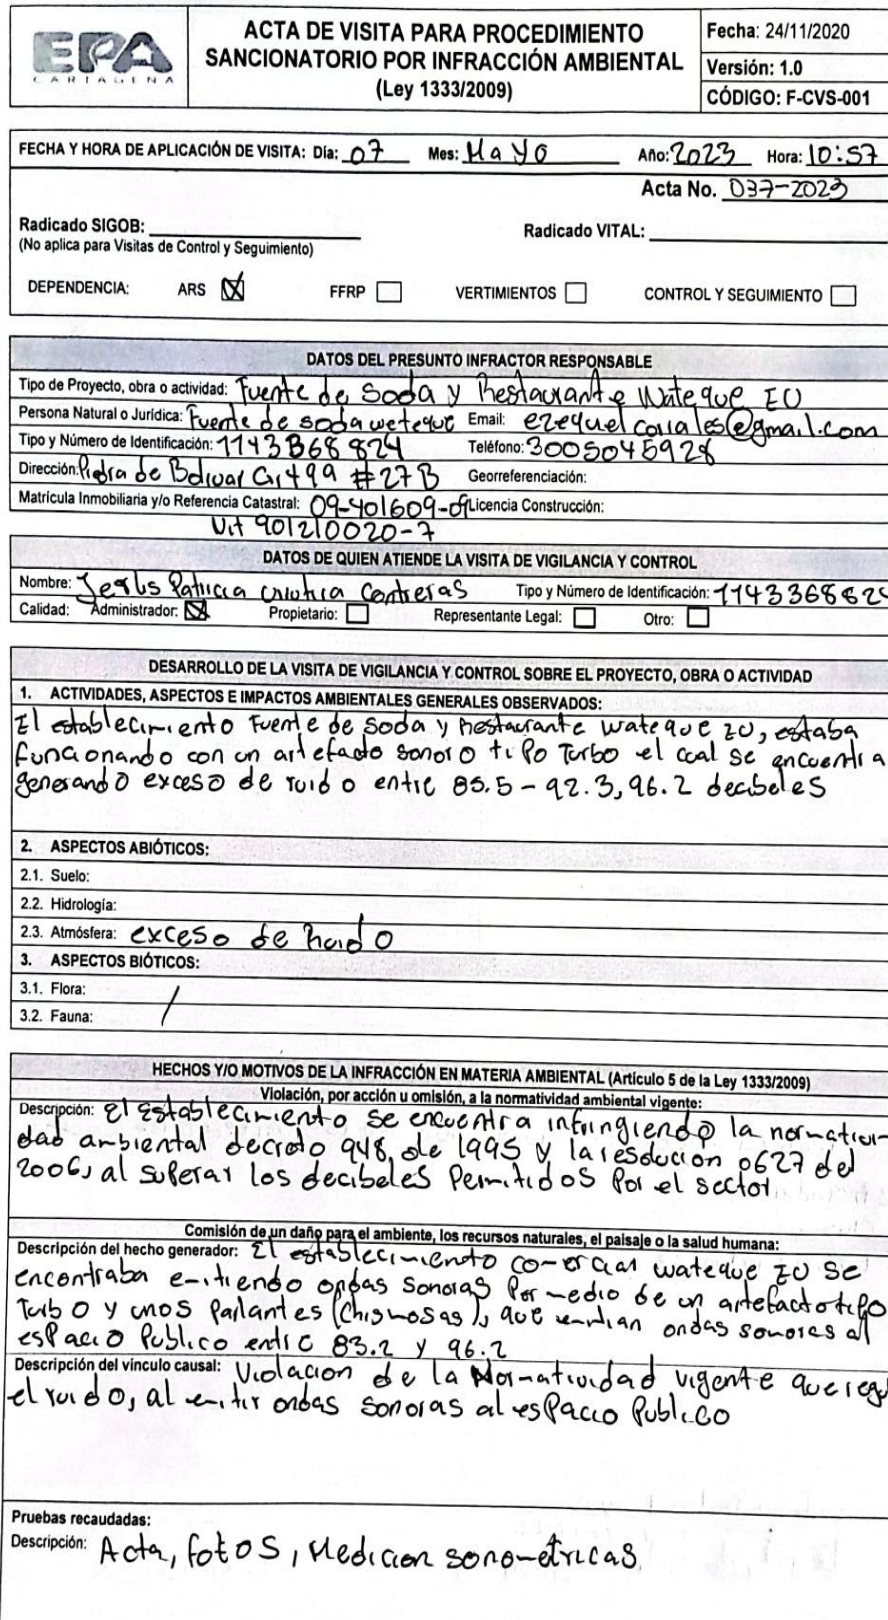 EPA
CARTAGENA
ACTA DE VISITA PARA PROCEDIMIENTO
SANCIONATORIO POR INFRACCIÓN AMBIENTAL
(Ley 1333/2009)
Fecha: 24/11/2020
Versión: 1.0
CÓDIGO: F-CVS-001
FECHA Y HORA DE APLICACIÓN DE VISITA: Día: 07 Mes: Mayo Año: 2023 Hora: 10:57
Acta No. 037-2023
Radicado SIGOB:
(No aplica para Visitas de Control y Seguimiento)
Radicado VITAL:
DEPENDENCIA: ARS FFRP VERTIMIENTOS CONTROL Y SEGUIMIENTO
DATOS DEL PRESUNTO INFRACTOR RESPONSABLE
Tipo de Proyecto, obra o actividad: Fuente de Soda y Restaurante Wateque
Persona Natural o Jurídica: Fuente de soda weteque Email: @gmail.com
Tipo y Número de Identificación: 1143368824 Teléfono: 3005045928
Dirección: Piedra de Bolivar #27B Georreferenciación:
Matrícula Inmobiliaria y/o Referencia Catastral: 09-401609-09 Licencia Construcción:
Nit 901210020-7
DATOS DE QUIEN ATIENDE LA VISITA DE VIGILANCIA Y CONTROL
Nombre: Patricia Contreras Tipo y Número de Identificación: 1143368824
Calidad: Administrador: Propietario: Representante Legal: Otro:
DESARROLLO DE LA VISITA DE VIGILANCIA Y CONTROL SOBRE EL PROYECTO, OBRA O ACTIVIDAD
1. ACTIVIDADES, ASPECTOS E IMPACTOS AMBIENTALES GENERALES OBSERVADOS:
El establecimiento Fuente de Soda y Restaurante wateque EU, estaba
funcionando con un artefacto sonoro tipo Turbo el cual se encuentra
generando exceso de ruido entre 85.5 - 92.3, 96.2 decibeles
2. ASPECTOS ABIÓTICOS:
2.1. Suelo:
2.2. Hidrología:
2.3. Atmósfera: exceso de Ruido
3. ASPECTOS BIÓTICOS:
3.1. Flora:
3.2. Fauna:
HECHOS Y/O MOTIVOS DE LA INFRACCIÓN EN MATERIA AMBIENTAL (Artículo 5 de la Ley 1333/2009)
Violación, por acción u omisión, a la normatividad ambiental vigente:
Descripción: El Establecimiento se encuentra infringiendo la normativi-
dad ambiental decreto 948, de 1995 y la resolución 0627 del
2006, al superar los decibeles Permitidos por el sector
Comisión de un daño para el ambiente, los recursos naturales, el paisaje o la salud humana:
Descripción del hecho generador: El establecimiento comercial wateque EU se
encontraba emitiendo ondas sonoras Por medio de un artefacto tipo
Turbo y unos Parlantes (chismosas), que ondas sonoras al
esPacio Publico entre 83.2 y 96.2
Descripción del vínculo causal: Violacion de la Normatividad vigente que
el ruido, al emitir ondas sonoras al esPacio Publico
Pruebas recaudadas:
Descripción: Acta, fotos, Medicion sonometricas